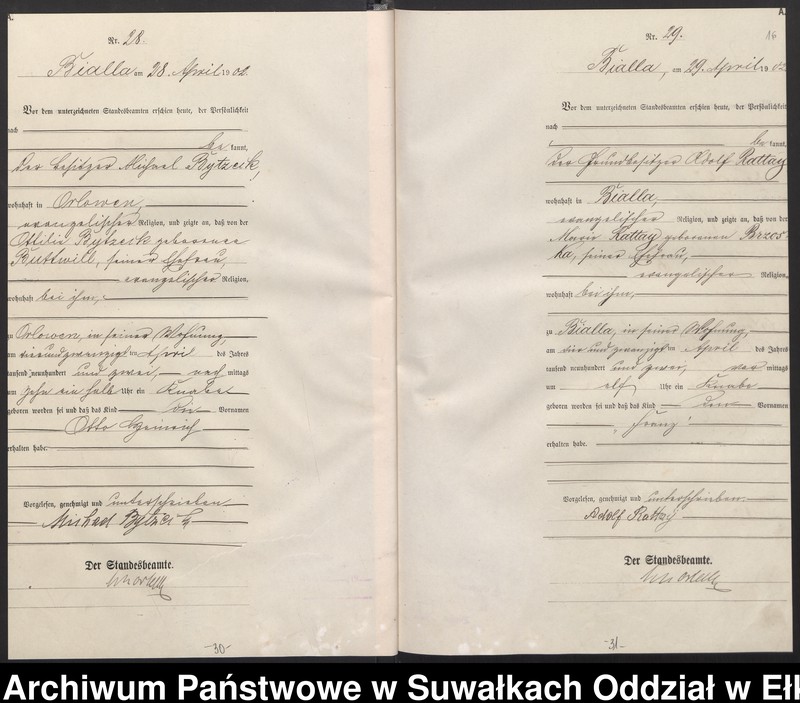 A.
Nr. 28.
Bialla am 28. April 1902.
Vor dem unterzeichneten Standesbeamten erschien heute, der Persönlichkeit
nach
be kannt,
der Besitzer Michael Bytzeik,
wohnhaft in Orlowen,
evangelischer Religion, und zeigte an, daß von der
Ottilie Bytzeik geborenen
Buttwill, seiner Ehefrau,
evangelischer Religion,
wohnhaft bei ihm,
zu Orlowen, in seiner Wohnung,
am vierundzwanzigten April des Jahres
tausend neunhundert und zwei, nach mittags
um zehn ein halb Uhr ein Knabe
geboren worden sei und daß das Kind die Vornamen
Otto Heinrich
erhalten habe.
Vorgelesen, genehmigt und unterschrieben
Michael Bytzeik
Der Standesbeamte.
-30-
A.
16
Nr. 29.
Bialla, am 29. April 1902
Vor dem unterzeichneten Standesbeamten erschien heute, der Persönlichkeit
nach
be kannt,
der Grundbesitzer Adolf Rattay
wohnhaft in Bialla,
evangelischer Religion, und zeigte an, daß von der
Marie Rattay geborenen Brzos-
ka, seiner Ehefrau,
evangelischer Religion,
wohnhaft bei ihm,
zu Bialla, in seiner Wohnung,
am vier und zwanzigten April des Jahres
tausend neunhundert und zwei, vor mittags
um elf Uhr ein Knabe
geboren worden sei und daß das Kind den Vornamen
"Franz"
erhalten habe.
Vorgelesen, genehmigt und unterschrieben.
Adolf Rattay
Der Standesbeamte.
-31-
Archiwum Państwowe w Suwałkach Oddział w Ełk